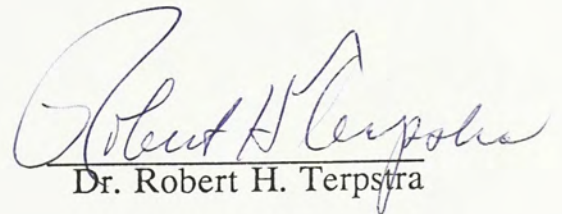 Robert H Terpstra
Dr. Robert H. Terpstra